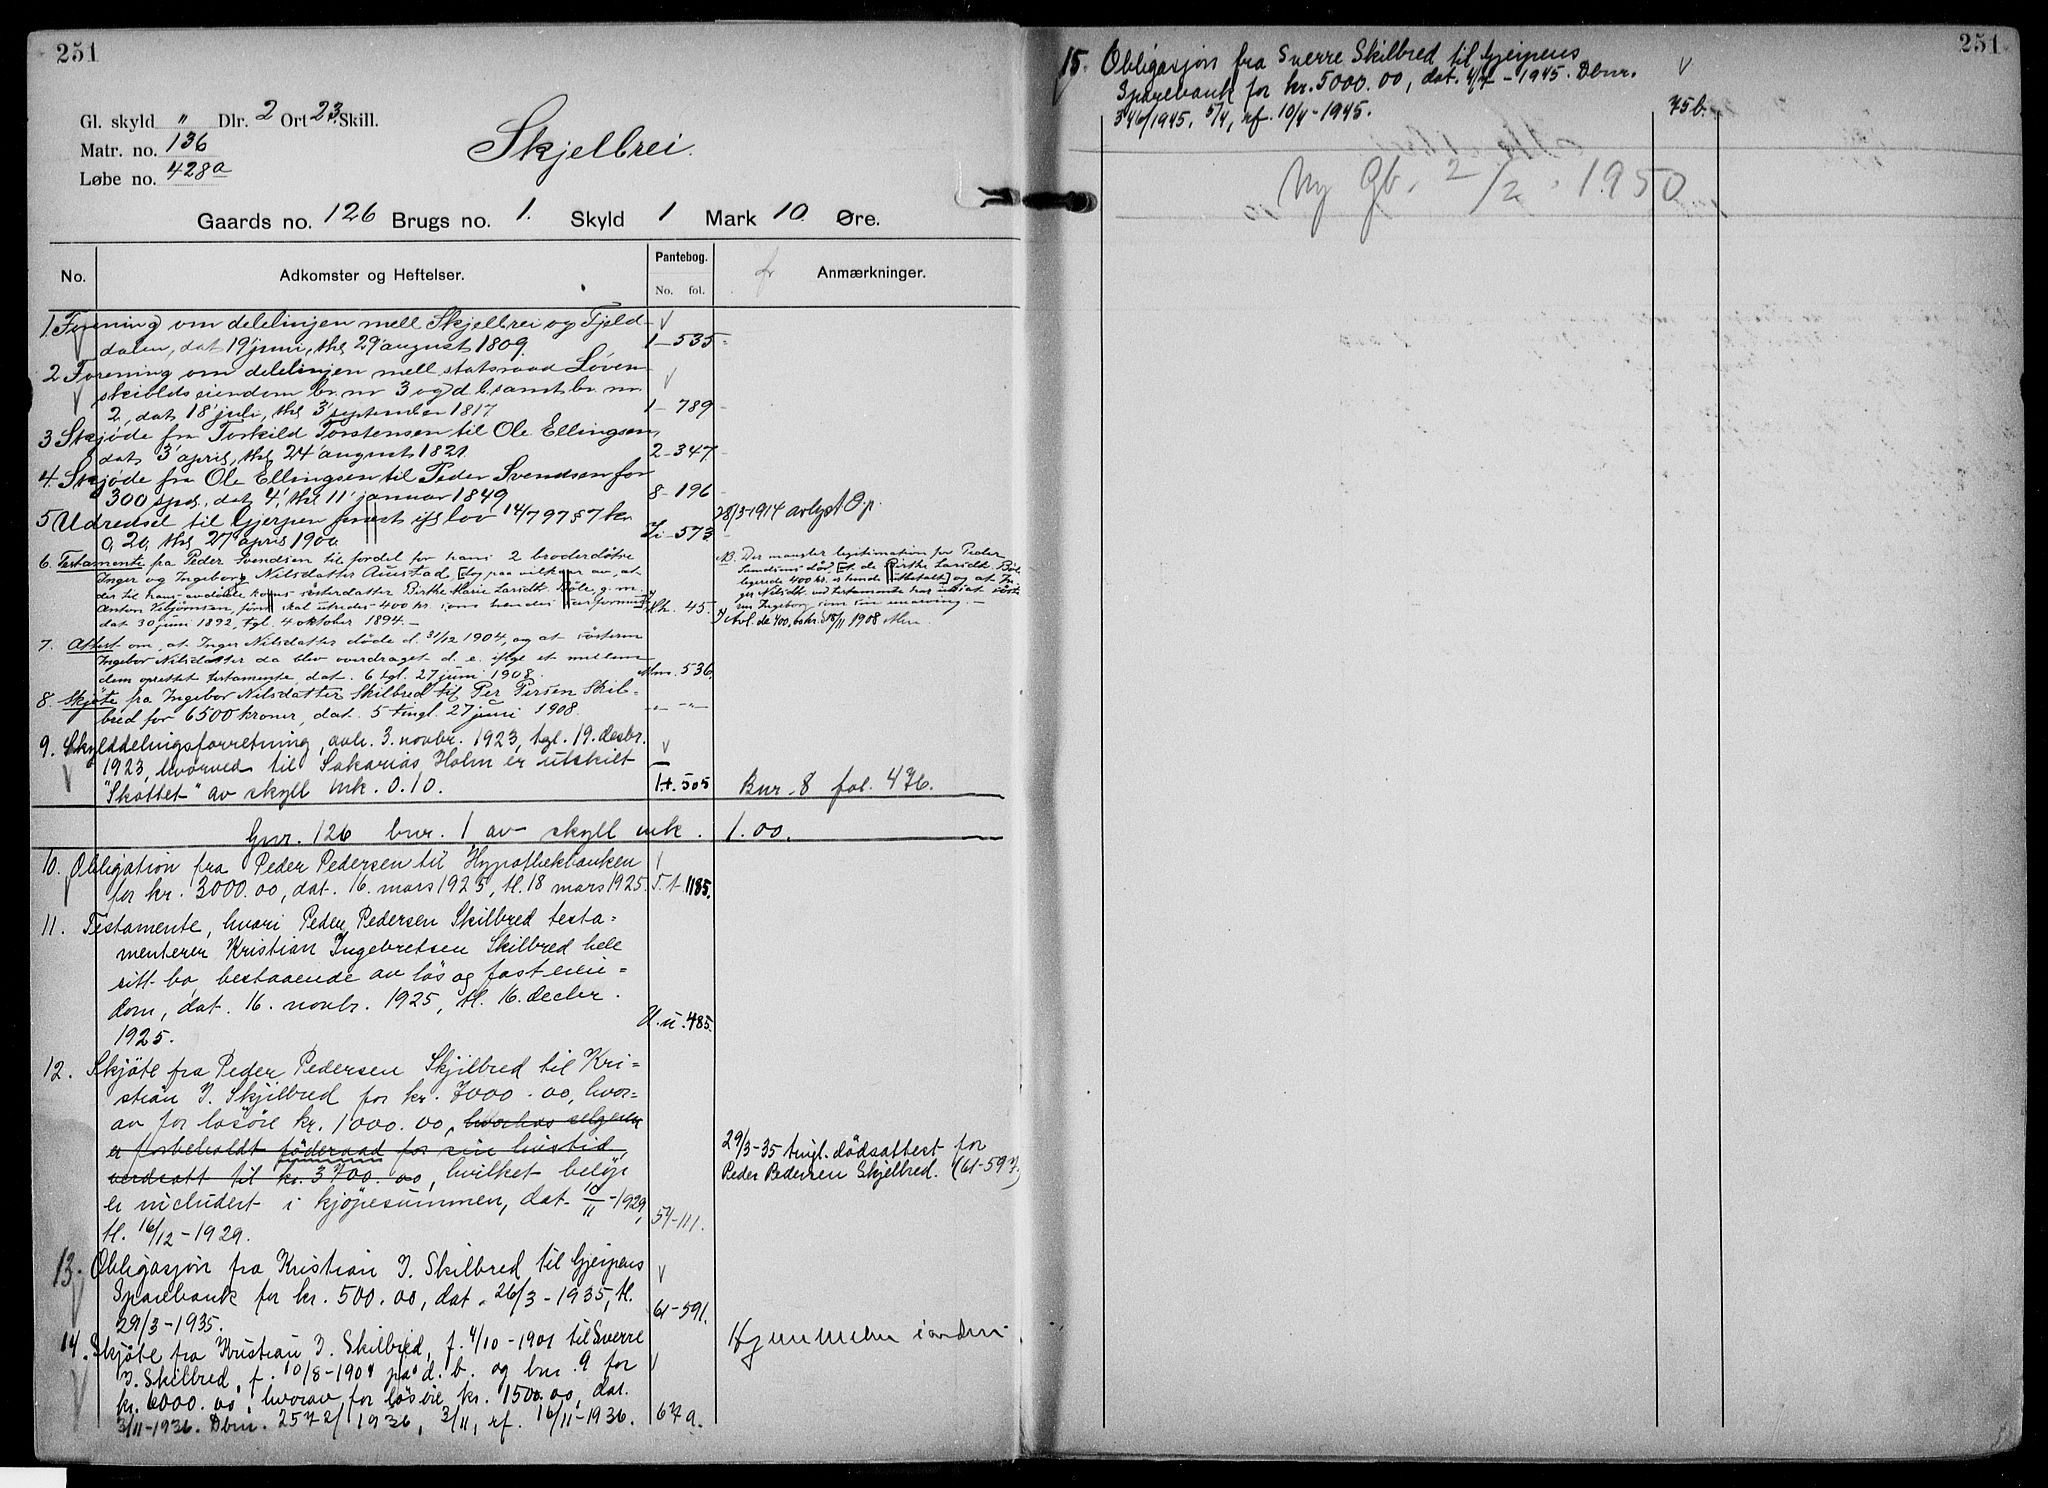 251
Gl. skyld " Dlr. 2 Ort 23 Skill.
Matr. no. 136
Løbe no. 428a
Skjelbrei.
Gaards no. 126 Brugs no. 1. Skyld 1 Mark 10 Øre.
No. Adkomster og Heftelser. Pantebog. No. fol. Anmærkninger.
1. Forening om delelinjen mell Skjelbrei og Fjeld-
dalen, dat 19' juni, thl 29' august 1809. 1-535
2 Forening om delelinjen mell statsraad Løven-
skiolds eiendom br. nr 3 og d. b. samt br. nr
2, dat 18' juli, thl 3' september 1817. 1-789
3 Skjøde fra Torkild Torstensen til Ole Ellingsen,
dat 3' april, thl 24' august 1821. 2-347
4. Skjøde fra Ole Ellingsen til Peder Svendsen for
300 spd., dat 4', thl 11' januar 1849 8-196
5 Udredsel til Gjerpen prest ifl lov 14/7 97 § 7 kr 28/3-1914 avlyst
0,20, thl 27 april 1900 573
6. Testamente fra Peder Svendsen til fordel for hans 2 broderdøtre NB. Der mangler legitimation for Peder
Inger og Ingeborg Nilsdatter Aunstad [dog paa vilkaar av, at Svendsens død, [at de Birthe Larsdt. Bøle
der til hans avdøde kones søsterdatter Birthe Marie Larsdt. Bøle, g. m. legerede 400 kr. er hende utbetalt] og at In-
Anton skal utredes 400 kr. som hendes ger Nilsdt. ved testamente har indsat søste-
dat 30 juni 1892, tgl. 4 oktober 1894. — 45. ren Ingeborg som sin enearving. —
Avl. de 400, 1908
7. Attest om, at Inger Nilsdatter døde d. 31/12 1904, og at søsteren
Ingebor Nilsdatter da blev overdraget d. e. iflge et mellem
dem oprettet testamente, dat. 6 tgl. 27 juni 1908. 536
8. Skjøte fra Ingebor Nilsdatter Skilbred til Per Persen Skil-
bred for 6500 kroner, dat. 5 tingl. 27 juni 1908. -"- -"-
9. Skylddelingsforretning, avh. 3. novbr. 1923, tgl. 19. desbr.
1923, hvorved til Sakarias Holm er utskilt
"Skottet" av skyll mk. 0.10. 505 Bnr. 8 fol. 476.
Gnr. 126 bnr. 1 av skyll mk. 1.00.
10. Obligation fra Peder Pedersen til Hypothekbanken
for kr. 3000.00, dat. 16. mars 1925, tl. 18 mars 1925. 1185.
11. Testamente, hvori Peder Pedersen Skilbred testa-
menterer Kristian Ingebretsen Skilbred hele
sitt bo, bestaaende av løs og fast eien-
dom, dat. 16. novbr. 1925, tl. 16. decbr.
1925. U. u. 485.
12. Skjøte fra Peder Pedersen Skjilbred til Kri-
stian I. Skjilbred for kr. 7000.00, hvor-
av for løsøre kr. 1000.00, hvorhos selgeren
er forbeholdt føderaad for sin livstid, 29/3-35 tingl. dødsattest for
verdsatt til kr. 3700.00, hvilket beløp Peder Pedersen Skjelbred. (61-597)
er includert i kjøpesummen, dat. 10/11-1929,
tl. 16/12-1929. 57-111.
13. Obligasjon fra Kristian I. Skilbred til Gjerpens
Sparebank for kr. 500.00, dat. 26/3-1935, tl.
29/3-1935. 61-591.
14. Skjøte fra Kristian I. Skilbred, f. 4/10-1901 til Sverre Hjemmelen i orden
I. Skilbred, f. 10/8-1904 på d. b. og bnr. 9 for
kr. 6000.00, hvorav for løsøre kr. 1500.00, dat.
3/11-1936. Dbnr. 2572/1936, 3/11, rf. 16/11-1936. 67a.
251
15. Obligasjon fra Sverre Skilbred til Gjerpens
Sparebank for kr. 5000.00, dat. 4/4-1945. Dbnr.
346/1945, 5/4, rf. 10/4-1945. 75b.
Ny Gb. 2/2. 1950